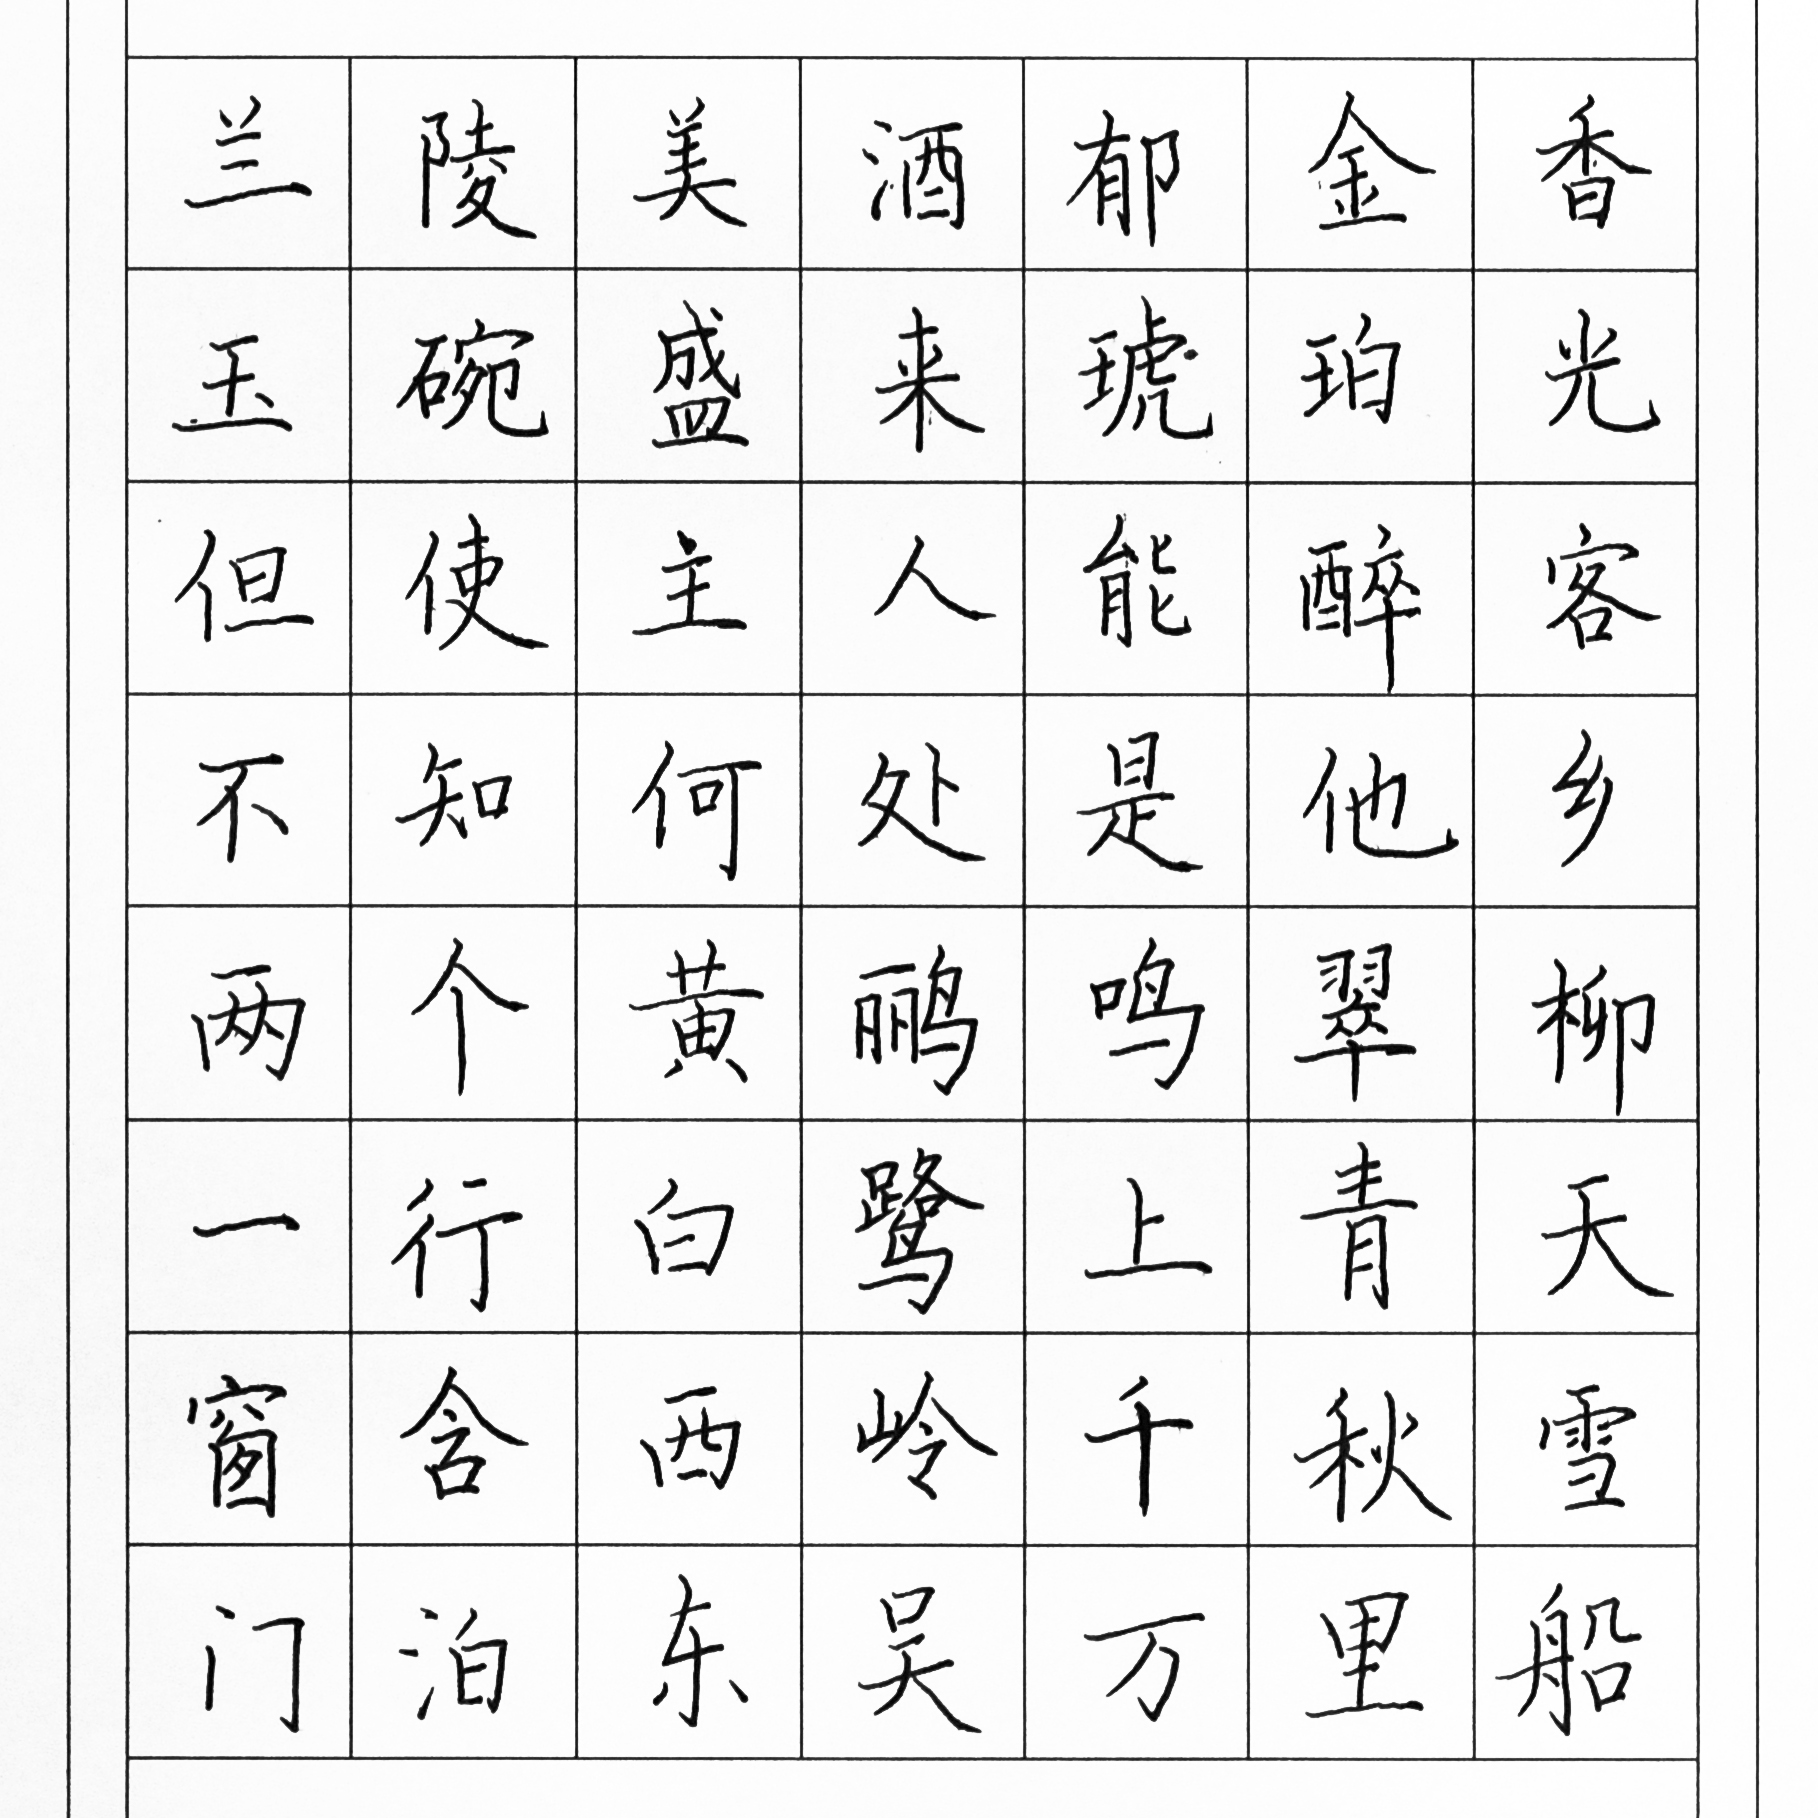 兰陵美酒郁金香
玉碗盛来琥珀光
但使主人能醉客
不知何处是他乡
两个黄鹂鸣翠柳
一行白鹭上青天
窗含西岭千秋雪
门泊东吴万里船